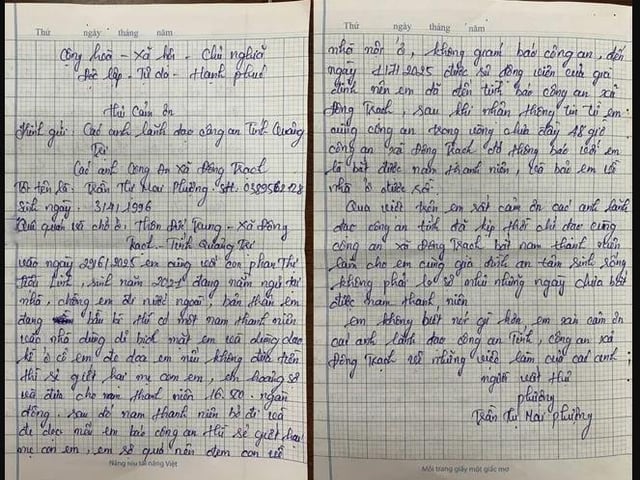 Thứ ngày tháng năm
Cộng hoà - Xã hội - Chủ nghĩa
Độc lập - Tự do - Hạnh phúc
Thư cảm ơn
Kính gửi: Các anh lãnh đạo công an Tỉnh Quảng
Trị
Các anh Công An Xã Đông Trạch
Tôi tên là: Trần Thị Mai Phương. sđt:
Sinh ngày: 1996
Quê quán và chỗ ở: Thôn Đức Trung - Xã Đông
Trạch - Tỉnh Quảng Trị
vào ngày em cùng với con phan Thị
sinh năm 2021 đang nằm ngủ tại
nhà, chồng em đi nước ngoài, bản thân em
đang bầu bí thì có một nam thanh niên
vào nhà dùng dẻ bịch mặt em và dùng dao
kề ở cổ em đe doạ em nếu không đưa tiền
thì sẽ giết hai mẹ con em, em hoảng sợ
và đưa cho nam thanh niên 16.500. ngàn
đồng. sau đó nam thanh niên bỏ đi và
đe doạ nếu em báo công an thì sẽ giết hai
mẹ con em, em sợ quá nên đem con về
Nâng niu tài năng Việt
Thứ ngày tháng năm
nhà nội ở, không giám báo công an, đến
ngày 2025 được sự động viên của gia
đình nên em đã đến trình báo công an xã
Đông Trạch, sau khi nhận thông tin từ em
cùng công an trong vòng chưa đầy 48 giờ
công an xã Đông Trạch đã thông báo với em
là bắt được nam thanh niên, và bảo em về
nhà ở được rồi.
Qua việc trên em rất cảm ơn các anh lãnh
đạo công an tỉnh đã kịp thời chỉ đạo cùng
công an xã Đông Trạch bắt nam thanh niên
làm cho em cùng gia đình an tâm sinh sống
không phải lo sợ như những ngày chưa bắt
được nam thanh niên
em không biết nói gì hơn, em xin cảm ơn
các anh lãnh đạo công an Tỉnh, công an xã
Đông Trạch về những việc làm của các anh
người viết thư
phương
Trần Thị Mai Phương
Mỗi trang giấy một giấc mơ